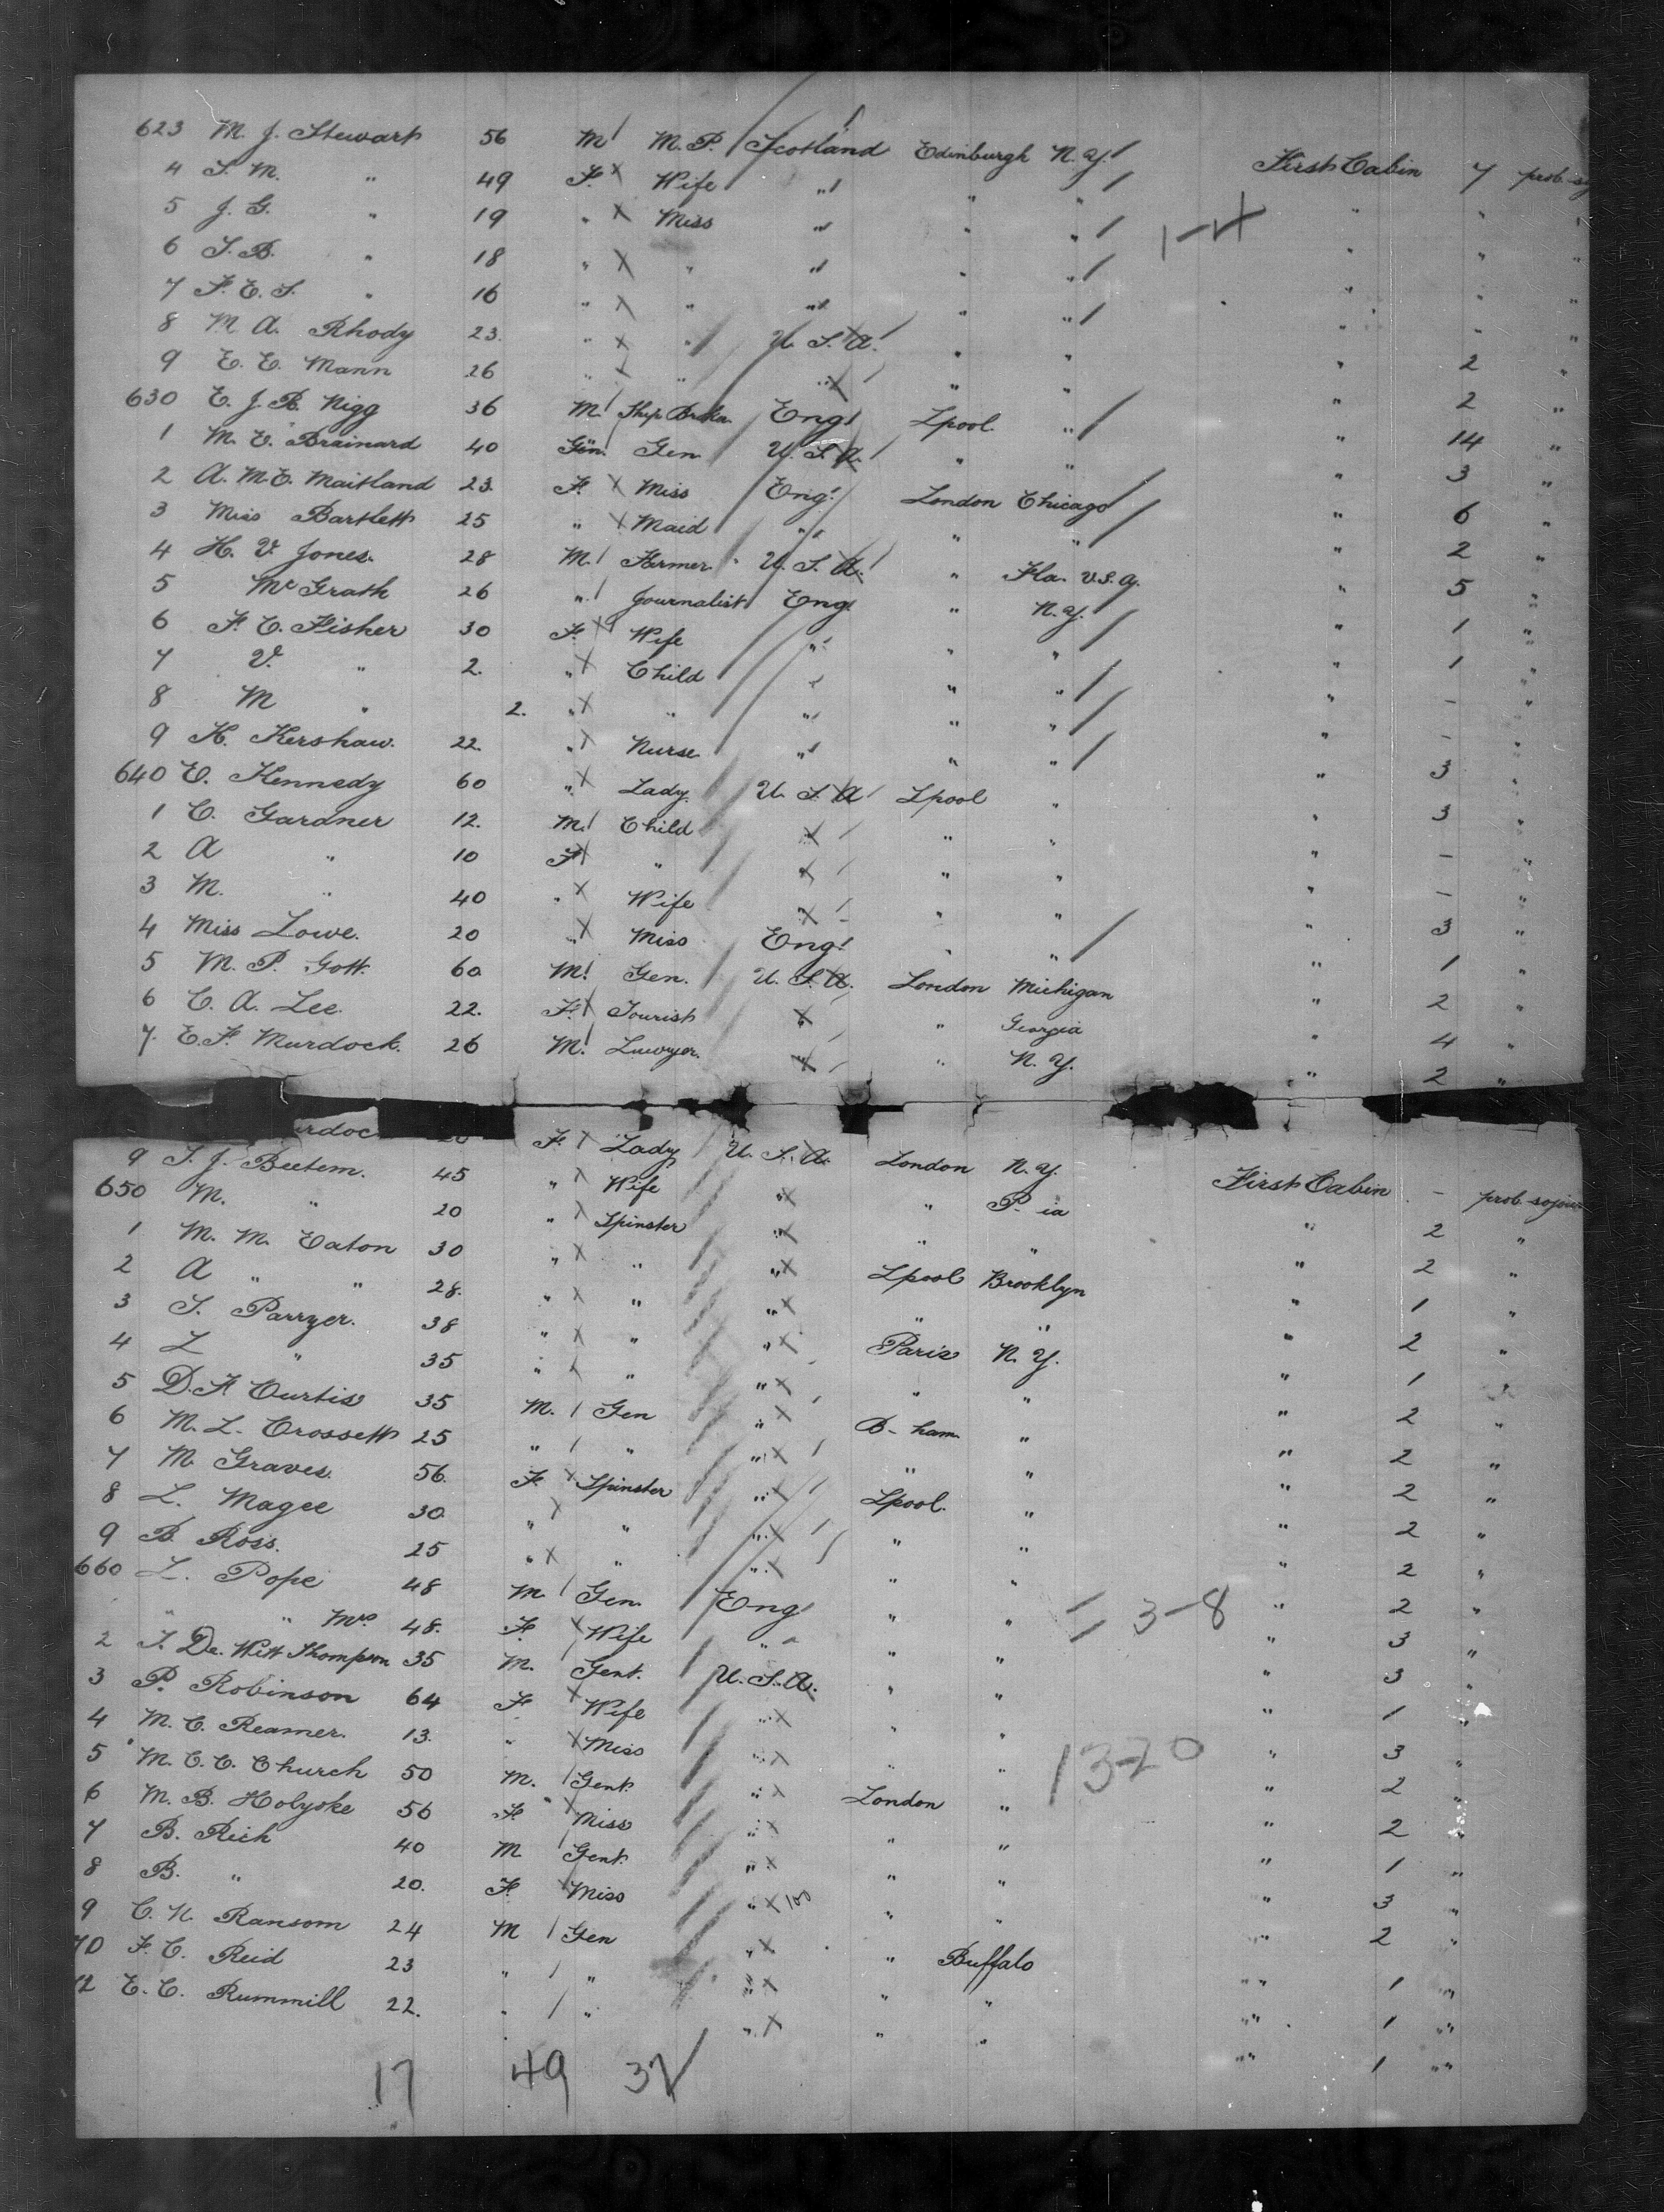 623 M. J. Stewart 56 M M.P. Scotland Edinburgh N.Y. First Cabin 7 prob. so
4 S. M. " 49 F. X Wife " " " " " "
5 J. G. " 19 " X Miss " " " " " " 1-4
6 S. B. " 18 " X " " " " " " "
7 F. E. S. " 16 " X " " " " " - "
8 M A. Rhody 23. " X " U.S.A. " " " 2 "
9 E. E. Mann 26 " X " " " " " 2 "
630 E. J. B. Nigg 36 M. Ship Broker Eng Lpool. " " 14 "
1 M. E. Brainard 40 Gen. Gen. U.S.A. " " " 3 "
2 A. M. E. Maitland 23. F. X Miss Eng. London Chicago " 6 "
3 Miss Bartlett 25 " X Maid " " " " 2 "
4 H. V. Jones. 28 M. Farmer. U.S.A. " Fla. U.S.A. " 5 "
5 McGrath 26 " Journalist Eng " N.Y. " 1 "
6 F. C. Fisher 30 F. X Wife " " " " 1 "
7 V. " 2. " X Child " " " " - "
8 M " 2. " X " " " " " - "
9 H. Kershaw. 22. " X Nurse " " " " 3 "
640 E. Kennedy 60 " X Lady. U.S.A. Lpool " " 3 "
1 C. Gardner 12. M. Child " " " " - "
2 A " 10 F. X " " " " " - "
3 M. " 40 " X Wife " " " " 3 "
4 Miss Lowe. 20 " X Miss Eng. " " " 1 "
5 M. P. Gott. 60 M. Gen. U.S.A. London Michigan " 2 "
6 C. A. Lee. 22. F. X Tourist " " Georgia " 4 "
7. E. F. Murdock. 26 M. Lawyer. " " N.Y. " 2 "
urdoc F. X Lady U.S.A. London N.Y. First Cabin - prob. sojour
9 S. J. Beetem. 45 " X Wife " " P-ia " 2 "
650 M. " 20 " X Spinster " " " " 2 "
1 M. M. Eaton 30 " X " " Lpool Brooklyn " 1 "
2 A " " 28. " X " " " " " 2 "
3 S. Parrzer. 38 " X " " Paris N.Y. " 1
4 L " 35 " X " " " " " 2 "
5 D. F. Curtis 35 M. Gen " B-ham. " " 2 "
6 M. L. Crossett 25 " " " " " " 2 "
7 M. Graves. 56. F. X Spinster " Lpool. " " 2 "
8 L. Magee 30. " X " " " " " 2 "
9 B. Ross. 25 " X " " " " " 2 "
660 L. Pope 48 M. Gen. Eng " " = 3-8 " 3 "
" " Mrs 48. F. X Wife " " " " 3 "
2 S. De. Witt Thompson 35 M. Gent. U.S.A. " " " 1 "
3 P. Robinson 64 F X Wife " " " " 3 "
4 M. C. Reamer. 13. " X Miss " " " 13-20 " 2 "
5 M. C. C. Church 50 M. Gent. " London " " 2 "
6 M. B. Holyoke 56 F. X Miss " " " " 1 "
7 B. Rich 40 M Gent. " " " " 3 "
8 B. " 20. F. X Miss " X 100 " " " 2 "
9 C. N. Ransom 24 M Gen " " Buffalo " 1 "
70 F. C. Reid 23 " " " " " " 1 "
72 E. C. Rummill 22. " " " " " " 1 "
17 49 32